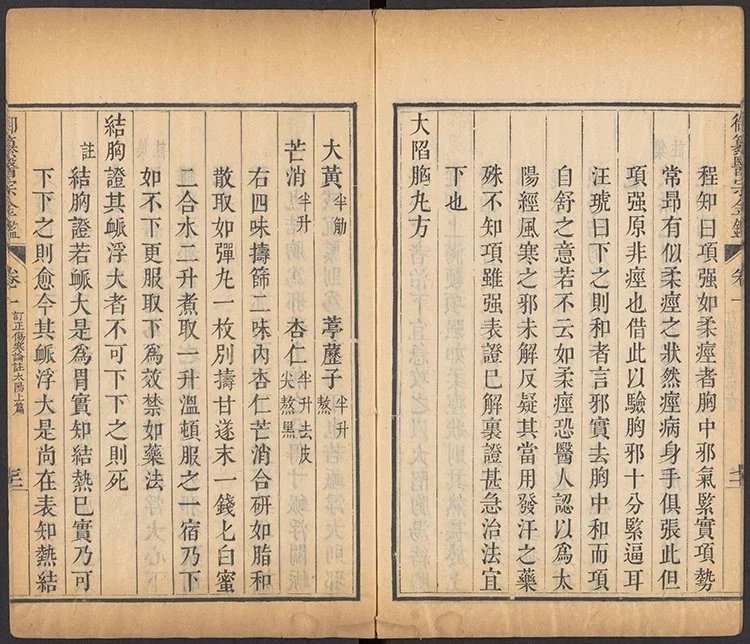 御纂醫宗金鑑 卷一
程知曰項强如柔痙者胸中邪氣緊實項勢
常昂有似柔痙之狀然痙病身手俱張此但
項强原非痙也借此以驗胸邪十分緊逼耳
汪琥曰下之則和者言邪實去胸中和而項
自舒之意若不云如柔痙恐醫人認以爲太
陽經風寒之邪未解反疑其當用發汗之藥
殊不知項雖强表證已解裏證甚急治法宜
下也
大陷胸丸方
大黃半觔 葶藶子半升熬
芒消半升 杏仁半升去皮尖熬黑
右四味擣篩二味內杏仁芒消合研如脂和
散取如彈丸一枚別擣甘遂末一錢匕白蜜
二合水二升煮取一升溫頓服之一宿乃下
如不下更服取下爲效禁如藥法
結胸證其脈浮大者不可下下之則死
註結胸證若脈大是爲胃實知結熱已實乃可
下下之則愈今其脈浮大是尚在表知熱結
御纂醫宗金鑑 卷一 訂正傷寒論註太陽上篇